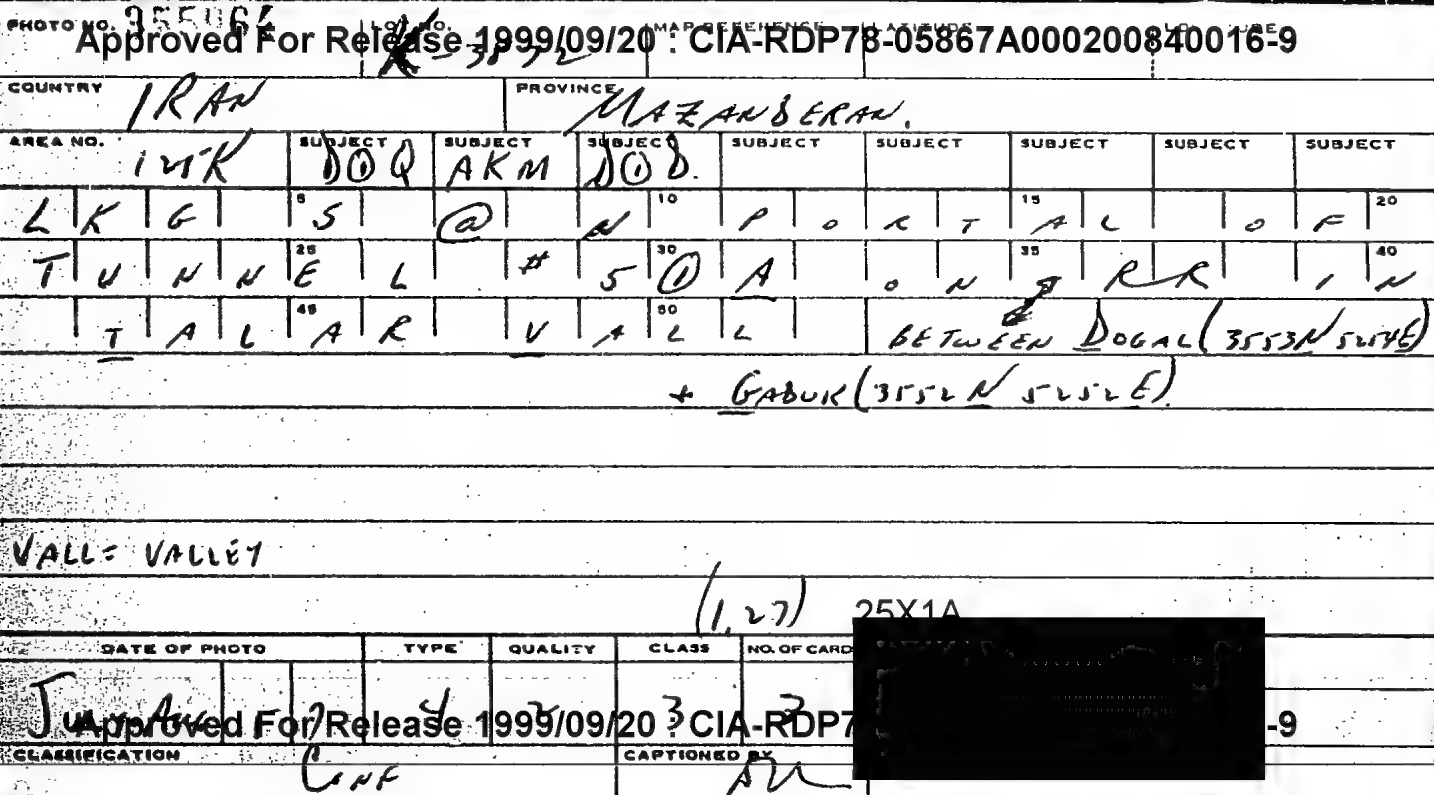 PHOTO NO. 355064 LOC. NO. MAP REFERENCE LATITUDE
Approved For Release 1999/09/20 : CIA-RDP78-05867A000200840016-9
K-3832
COUNTRY IRAN PROVINCE MAZANDERAN.
AREA NO. SUBJECT SUBJECT SUBJECT SUBJECT SUBJECT SUBJECT SUBJECT SUBJECT
125K DOQ AKM DOD.
LKG S @ N PORTAL OF
5 10 15 20
TUNNEL # 50A ON RR IN
25 30 35 40
TALAR VALL BETWEEN DOGAL (3553N 5254E)
45 50
+ GADUK (3552N 5252E)
VALL = VALLEY
(1,27) 25X1A
DATE OF PHOTO TYPE QUALITY CLASS NO. OF CARD
4 2 3 3
Approved For Release 1999/09/20 : CIA-RDP7 -9
CLASSIFICATION CONF CAPTIONED BY